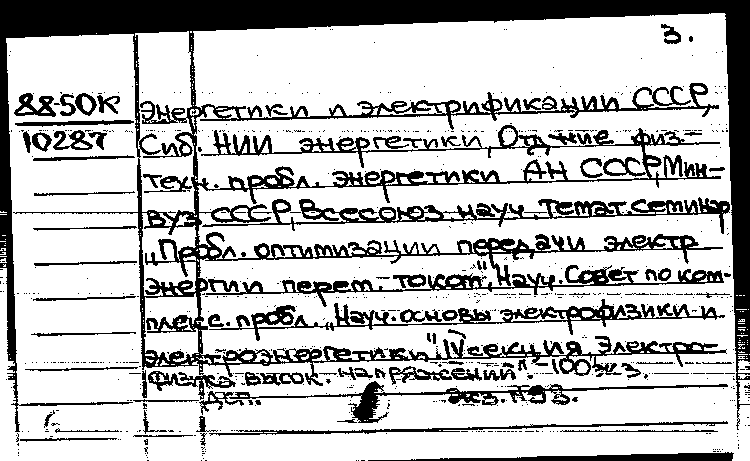 3.
88-50К
10287
энергетики и электрификации СССР,
Сиб. НИИ энергетики, Отд-ние физ.-
техн. пробл. энергетики АН СССР, Мин-
вуз СССР, Всесоюз. науч. темат. семинар
„Пробл. оптимизации передачи электр.
энергии перем. током", Науч. Совет по ком-
плекс. пробл. „Науч. основы электрофизики и
электроэнергетики", IV секция „Электро-
физика высок. напряжений". - 100 экз.
ДСП. экз. №93.